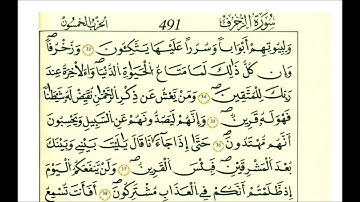 سُورَةُ الزُّخْرُفِ 491 الحِزْبُ الخَمْسُونَ
وَلِبُيُوتِهِمُۥٓ أَبْوَٰباً وَسُرُراً عَلَيْهَا يَتَّكِـُٔونَ 33 وَزُخْرُفاً
وَإِن كُلُّ ذَٰلِكَ لَمَا مَتَٰعُ الْحَيَوٰةِ الدُّنْيَا وَالَاخِرَةُ عِندَ
رَبِّكَ لِلْمُتَّقِينَ 34 وَمَنْ يَّعْشُ عَن ذِكْرِ الرَّحْمَٰنِ نُقَيِّضْ لَهُۥ شَيْطَٰناً
فَهُوَ لَهُۥ قَرِينٌ 35 وَإِنَّهُمْ لَيَصُدُّونَهُمْ عَنِ السَّبِيلِ وَيَحْسِبُونَ
أَنَّهُم مُّهْتَدُونَ 36 حَتَّىٰٓ إِذَا جَآءَٰنَا قَالَ يَٰلَيْتَ بَيْنِے وَبَيْنَكَ
بُعْدَ الْمَشْرِقَيْنِ فَبِيسَ الْقَرِينُ 37 وَلَنْ يَّنفَعَكُمُ الْيَوْمَ
إِذ ظَّلَمْتُمُۥٓ أَنَّكُمْ فِے الْعَذَابِ مُشْتَرِكُونَ 38 أَفَأَنتَ تُسْمِعُ